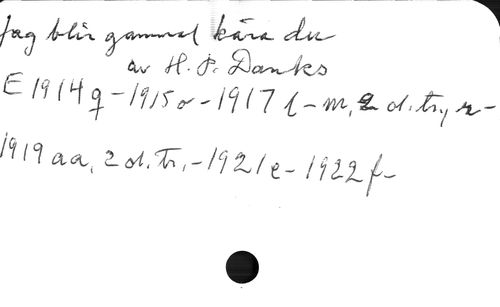 Jag blir gammal kära du
av H. P. Danks
E 1914 q - 1915 o - 1917 l - m, 2 d. tr., r -
1919 aa, 2 d. tr., - 1921 e - 1922 f -